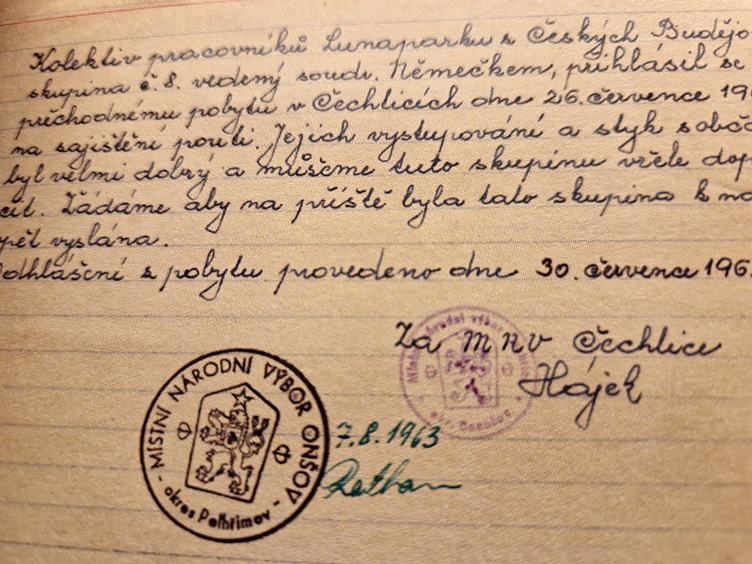 Kolektiv pracovníků Lunaparku z Českých Budějo
skupina č. 8. vedený soudr. Němečkem, přihlásil se
přechodnému pobytu v Čechticích dne 26. července 196
na zajištění pouti. Jejich vystupování a styk s obča
byl velmi dobrý a můžeme tuto skupinu vřele dop
čit. Žádáme aby na příště byla tato skupina k ná
opět vyslána.
Odhlášení z pobytu provedeno dne 30. července 196
Za MNV Čechtice
Hájek
MÍSTNÍ NÁRODNÍ VÝBOR ONŠOV
okres Pelhřimov
7.8.1963